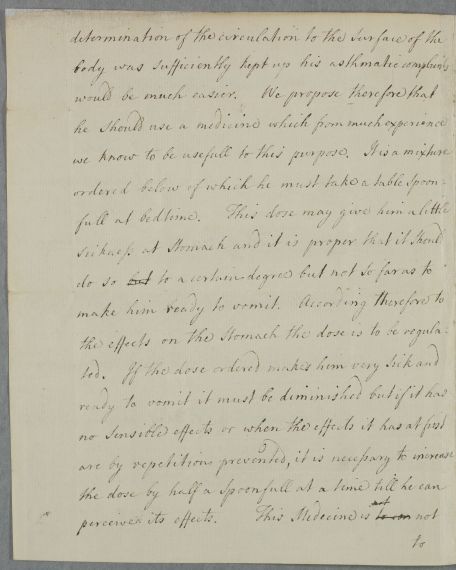 determination of the circulation to the surface of the
body was sufficiently kept up his asthmatic complaints
would be much easier. We propose therefore that
he should use a medicine which from much experience
we know to be usefull to this purpose. It is a mixture
ordered below of which he must take a table spoon-
full at bedtime. This dose may give him a little
sickness at stomach and it is proper that it should
do so but to a certain degree but not so far as to
make him ready to vomit. According therefore to
the effects on the stomach the dose is to be regula-
ted. If the dose ordered makes him very sick and
ready to vomit it must be diminished but if it has
no sensible effects or when the effects it has at first
are by repetitions prevented, it is necessary to increase
the dose by half a spoonfull at a time till he can
perceive its effects. This Medecine is not
to